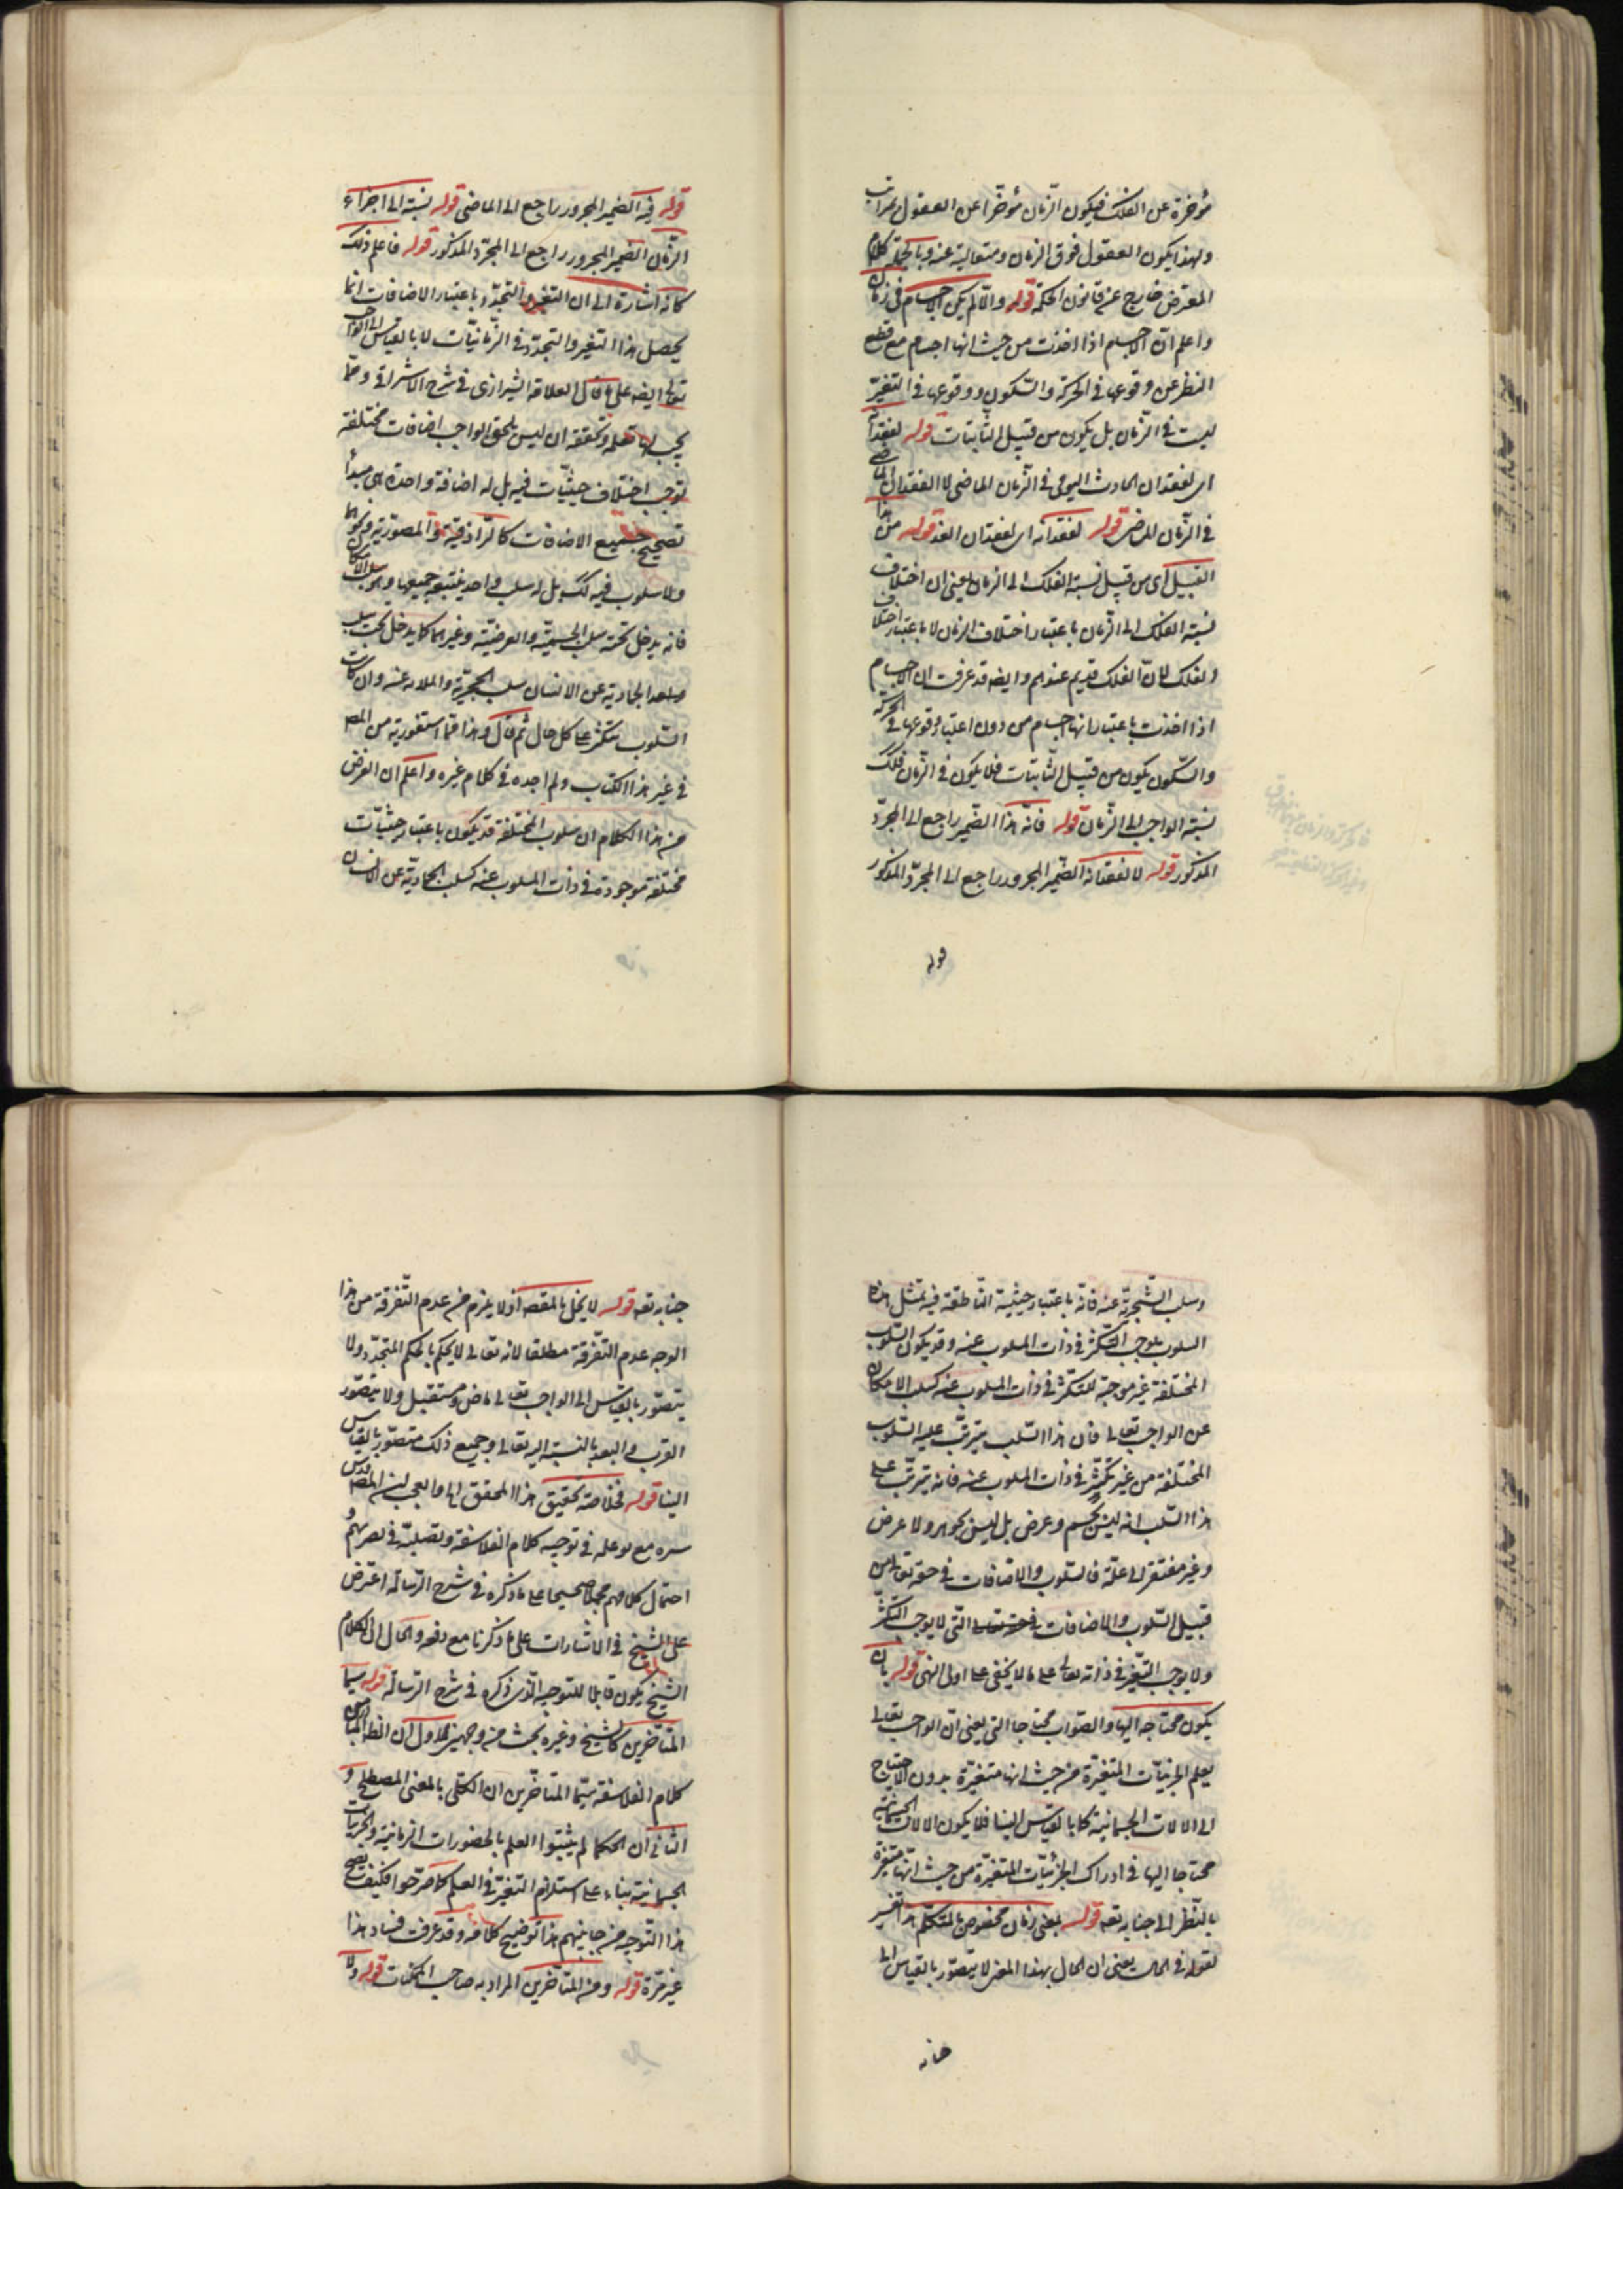 مؤخرة عن الفلك فيكون الزمان مؤخرا عن العقول بمراتب
ولهذا يكون العقول فوق الزمان ومتعالية عنه وبالجملة كلام
المعترض خارج عن قانون الحكمة قوله والا لم يكن الاجسام في زمان
واعلم ان الاجسام اذا اخذت من حيث انها اجسام مع قطع
النظر عن وقوعها في الحركة والسكون ووقوعها في التغير
ليست في الزمان بل يكون من قبيل الثابتات قوله لفقدان
اى لفقدان الحادث اليومى في الزمان الماضى لا الفقدان الماضى
في الزمان الماضى قوله لفقدانه اى لفقدان الغد قوله من هذا
القبيل اى من قبيل نسبة الفلك الى الزمان يعنى ان اختلاف
نسبة الفلك الى الزمان باعتبار اختلاف الزمان لا باعتبار اختلاف
الفلك لان الفلك قديم عندهم وايضه قد عرفت ان الاجسام
اذا اخذت باعتبار انها اجسام من دون اعتبار وقوعها في الحركة
والسكون يكون من قبيل الثابتات فلا يكون في الزمان فكك
نسبة الواجب الى الزمان قوله فانه هذا الضمير راجع الى المجرد
المذكور قوله لا لفقدانه الضمير المجرور راجع الى المجرد المذكور
قوله
قوله فيه الضمير المجرور راجع الى الماضى قوله نسبته الى اجزاء
الزمان الضمير المجرور راجع الى المجرد المذكور قوله فاعلم ذلك
كانه اشارة الى ان التغير والتجدد باعتبار الاضافات انما
يحصل هذا التغير والتجدد في الزمانيات لا بالقياس الى الواجب
تعالى ايضه على ما قال العلامة الشيرازى في شرح الاشراق ومما
يجب ان تعلمه وتحققه ان ليس يلحق الواجب اضافات مختلفة
توجب اختلاف حيثيات فيه بل له اضافة واحدة هى مبدأ
تصحيح جميع الاضافات كالرازقية والمصورية ونحوهما
ولا سلوب فيه كك بل له سلب واحد يتبعه جميعها وهو سلب الامكان
فانه يدخل تحته سلب الجسمية والعرضية وغيرهما كما يدخل تحت سلب
الجمادية عن الانسان سلب الحجرية والمدرية عنه وان كانت
السلوب تتكثر على كل حال ثم قال وهذا مما استفدته من المص
في غير هذا الكتاب ولم اجده في كلام غيره واعلم ان الغرض
من هذا الكلام ان سلوب المختلفة قد يكون باعتبار حيثيات
مختلفة موجودة في ذات المسلوب عنه كسلب الجمادية عن الانسان
وسلب الشجرية عنه فانه باعتبار حيثية الناطقة فيه فمثل هذا
السلوب يوجب التكثر في ذات المسلوب عنه وقد يكون السلوب
المختلفة غير موجبة للتكثر في ذات المسلوب عنه كسلب الامكان
عن الواجب تعالى فان هذا السلب يترتب عليه السلوب
المختلفة من غير تكثر في ذات المسلوب عنه فانه يترتب على
هذا السلب انه ليس بجسم وعرض بل ليس بجوهر ولا عرض
وغير مفتقر الى علة فالسلوب والاضافات في حقه تعالى من
قبيل السلوب والاضافات التى لا يوجب التكثر
ولا يوجب التغير في ذاته تعالى على ما لا يخفى على اولى النهى قوله بان
يكون محتاجه اليها والصواب محتاجا التى يعنى ان الواجب تعالى
يعلم الجزئيات المتغيرة من حيث انها متغيرة بدون الاحتياج
الى الالات الجسمانية كما بالقياس الينا فلا يكون الالات الجسمانية
محتاجا اليها في ادراك الجزئيات المتغيرة من حيث انها متغيرة
بالنظر الى جنابه تعه قوله بمعنى زمان مخصوص بالمتكلم هذا تفسير
لقوله في الحال يعنى ان الحال بهذا المعنى لا يتصور بالقياس الى
جنابه
جنابه تعه قوله لا يخل بالمقصه اذ لا يلزم من عدم التفرقة من هذا
الوجه عدم التفرقة مطلقا لانه تعالى لا يحكم بالحكم المتجدد ولا
يتصور بالقياس الى الواجب تعالى ماض ومستقبل ولا يتصور
القرب والبعد بالنسبة اليه تعالى وجميع ذلك متصور بالقياس
الينا قوله فخلاصة تحقيق هذا المحقق الى والعجب ان المصه قدس
سره مع توغله في توجيه كلام الفلاسفة وتصلبه في نصرهم و
احتمال كلامهم محملا صحيحا على ما ذكره في شرح الرسالة اعترض
على الشيخ في الاشارات على ما ذكرنا مع دفعه والحال ان كلام
الشيخ يكون قابلا للتوجيه الذى ذكره في شرح الرسالة قوله سيما
المتأخرين كالشيخ وغيره بحث من وجهين الاول ان الظاهر من
كلام الفلاسفة سيما المتأخرين ان الكلى بالمعنى المصطلح و
الثانى ان الحكما لم يثبتوا العلم بالحضورات الزمانية والجزئيات
الجسمانية بناء على استلزام التغير في العلم كما صرحوا فكيف يصح
هذا التوجيه من جانبهم هذا توضيح كلامه وقد عرفت فساد هذا
غير مرة قوله ومن المتأخرين المراد به صاحب المحكمات قوله ولا